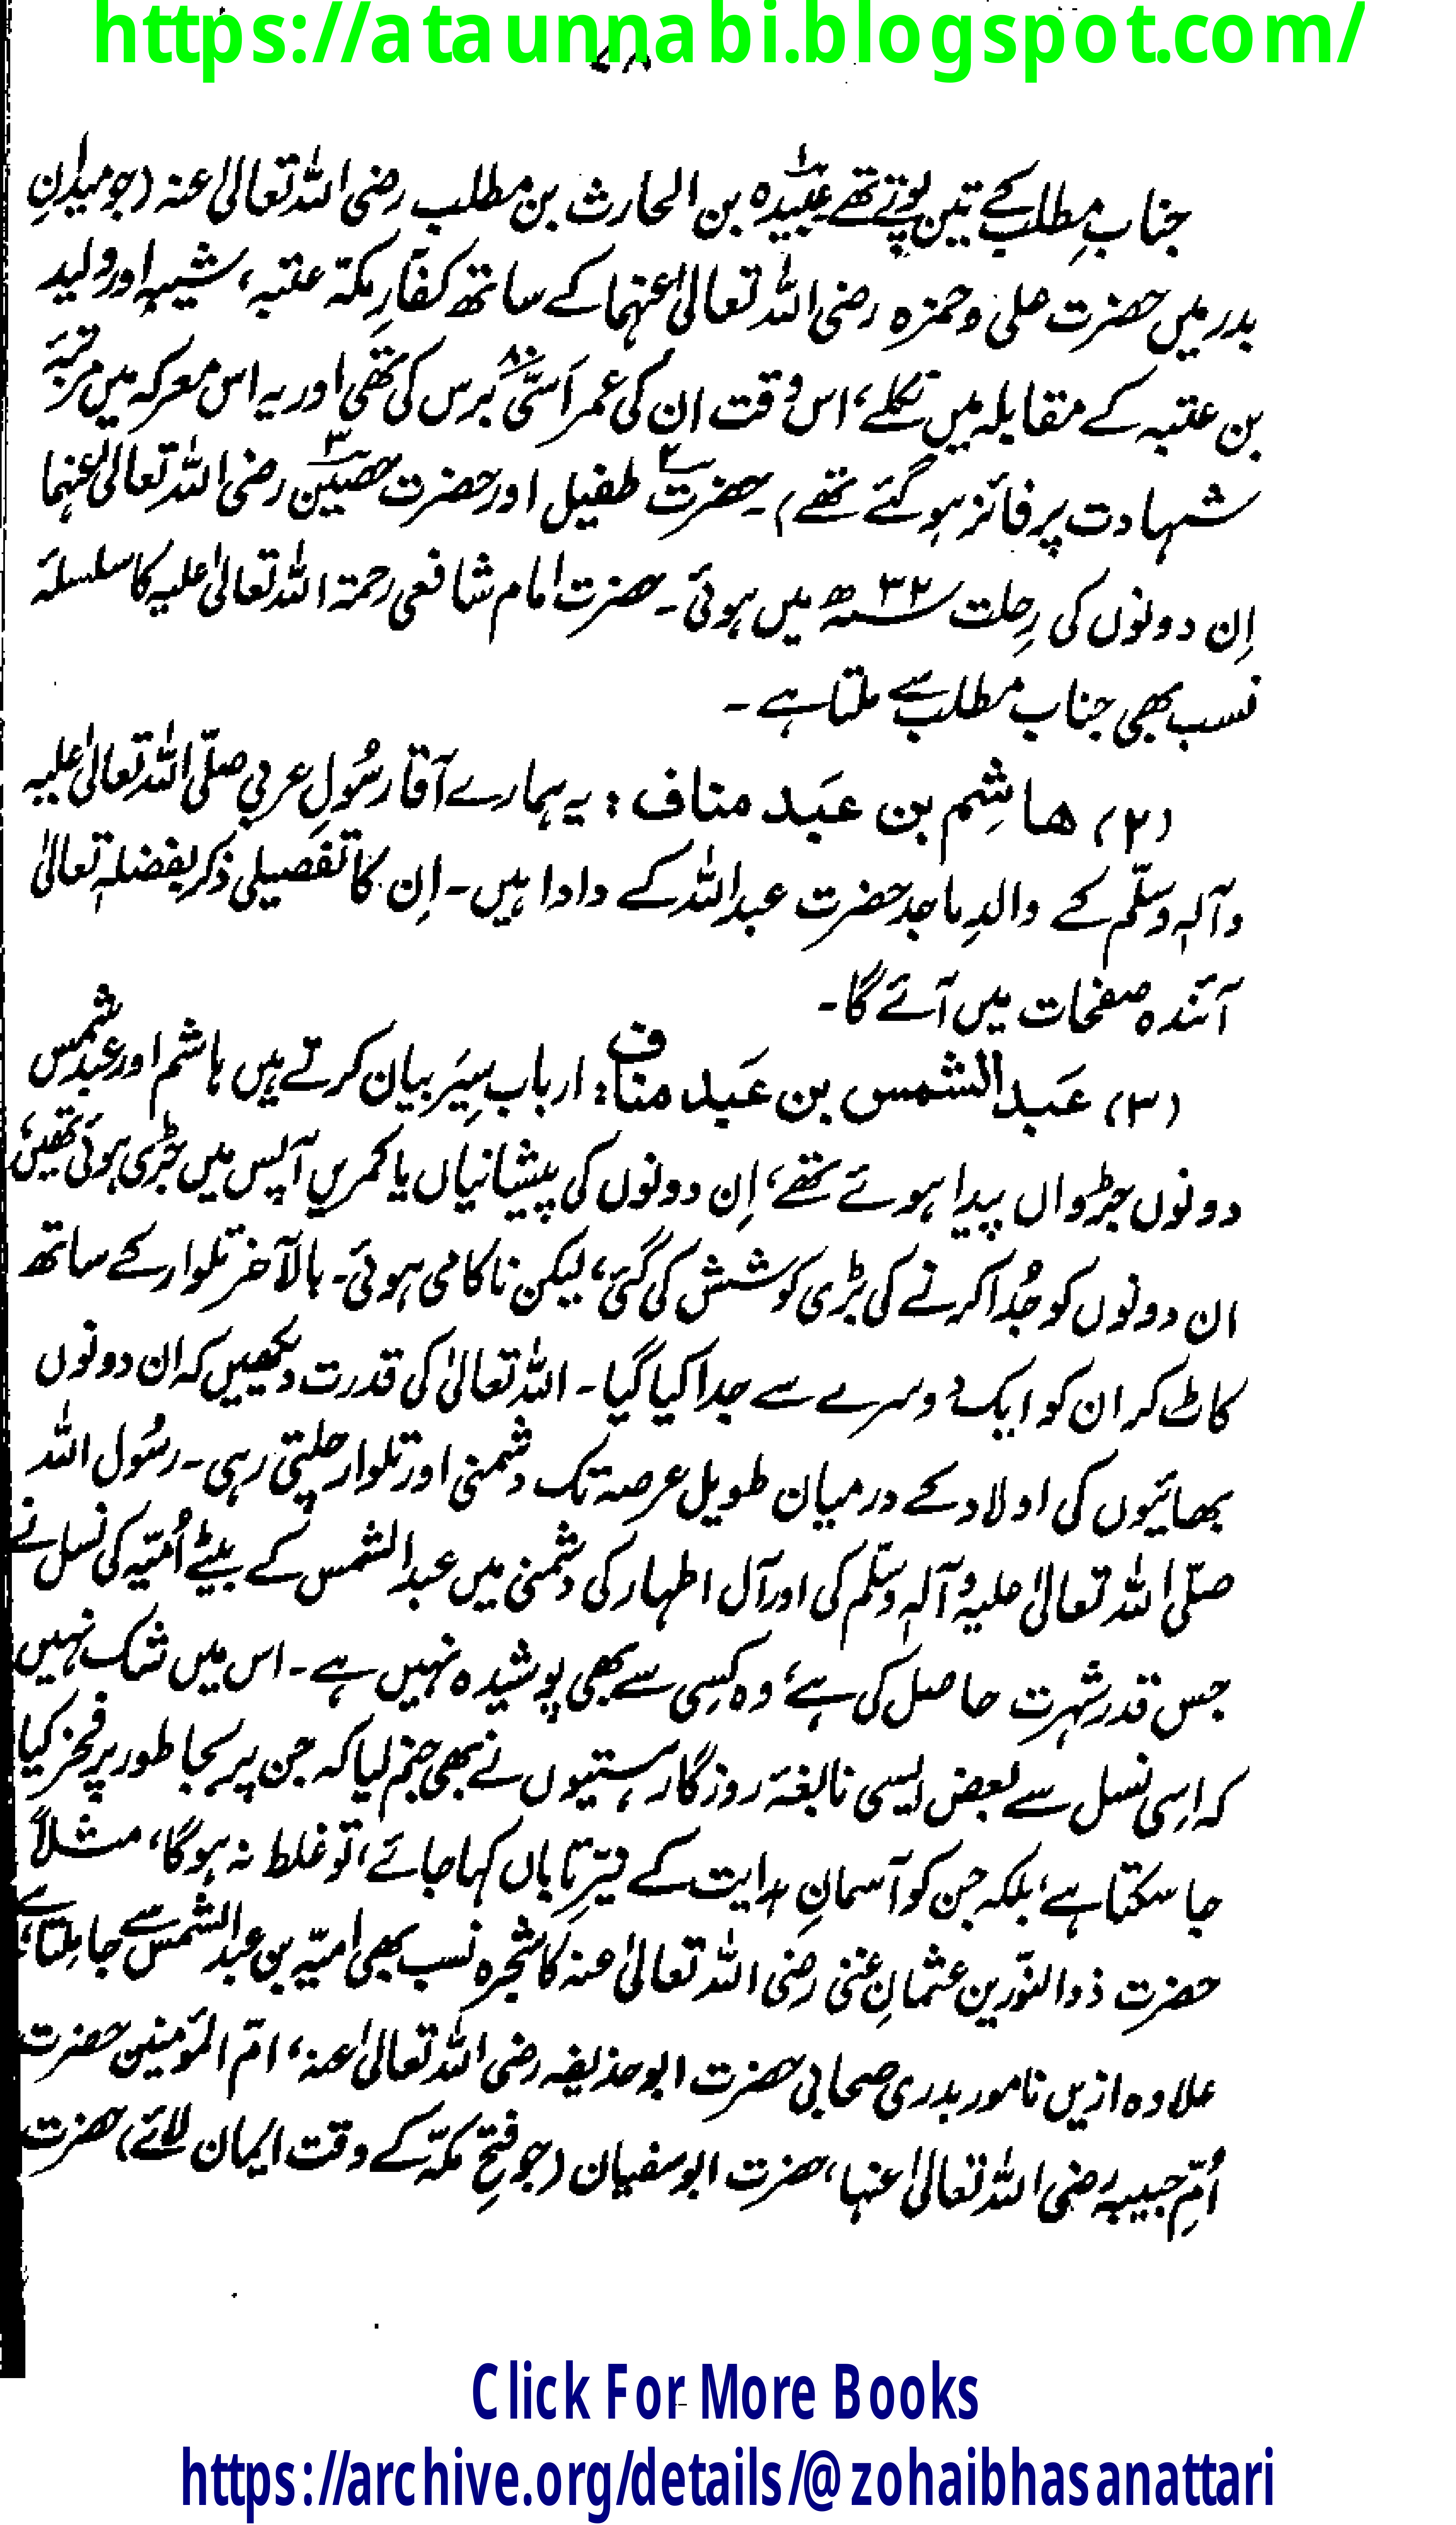 https://ataunnabi.blogspot.com/
جناب مطلب کے تین پوتے تھے عبیدہ بن الحارث بن مطلب رضی اللہ تعالیٰ عنہ (جو میدانِ
بدر میں حضرت علی و حمزہ رضی اللہ تعالیٰ عنہما کے ساتھ کفارِ مکہ عتبہ، شیبہ اور ولید
بن عتبہ کے مقابلہ میں نکلے، اس وقت ان کی عمر اَسّی ۸۰ برس کی تھی اور یہ اس معرکہ میں مرتبۂ
شہادت پر فائز ہو گئے تھے)۔ حضرت ۲ طفیل اور حضرت حصین ۳ رضی اللہ تعالیٰ عنہما
اِن دونوں کی رِحلت ۳۲ھ میں ہوئی۔ حضرت امام شافعی رحمۃ اللہ تعالیٰ علیہ کا سلسلۂ
نسب بھی جناب مطلب سے ملتا ہے۔
(۲) ھاشِم بن عبَد مناف: یہ ہمارے آقا رسُولِ عربی صلّی اللہ تعالیٰ علیہ
وآلہٖ وسلّم کے والدِ ماجد حضرت عبداللہ کے دادا ہیں۔ اِن کا تفصیلی ذکر بفضلہٖ تعالیٰ
آئندہ صفحات میں آئے گا۔
(۳) عَبدالشمس بن عَبد مناف: ارباب سِیَر بیان کرتے ہیں ہاشم اور عبدشمس
دونوں جڑواں پیدا ہوئے تھے، اِن دونوں کی پیشانیاں یا کمریں آپس میں جڑی ہوئی تھیں،
ان دونوں کو جُدا کرنے کی بڑی کوشش کی گئی، لیکن ناکامی ہوئی۔ بالآخر تلوار کے ساتھ
کاٹ کر ان کو ایک دوسرے سے جدا کیا گیا۔ اللہ تعالیٰ کی قدرت دیکھیں کہ ان دونوں
بھائیوں کی اولاد کے درمیان طویل عرصہ تک دشمنی اور تلوار چلتی رہی۔ رسُول اللہ
صلّی اللہ تعالیٰ علیہ وآلہٖ وسلّم کی اور آل اطہار کی دشمنی میں عبدالشمس کے بیٹے اُمیّہ کی نسل نے
جس قدر شہرت حاصل کی ہے، وہ کسِی سے بھی پوشیدہ نہیں ہے۔ اس میں شک نہیں
کہ اِسی نسل سے بعض ایسی نابغۂ روزگار ہستیوں نے بھی جنم لیا کہ جن پر بجا طور پر فخر کیا
جا سکتا ہے، بلکہ جن کو آسمانِ ہدایت کے نیّرِ تاباں کہا جائے، تو غلط نہ ہو گا، مثلاً
حضرت ذوالنّورین عثمانِ غنی رضی اللہ تعالیٰ عنہ کا شجرہ نسب بھی امیّہ بن عبدالشمس سے جا ملتا ہے،
علاوہ ازیں نامور بدری صحابی حضرت ابوحذیفہ رضی اللہ تعالیٰ عنہ، امّ المؤمنین حضرت
اُمِّ حبیبہ رضی اللہ تعالیٰ عنہا، حضرت ابوسفیان (جو فتحِ مکہّ کے وقت ایمان لائے) حضرت
Click For More Books
https://archive.org/details/@zohaibhasanattari